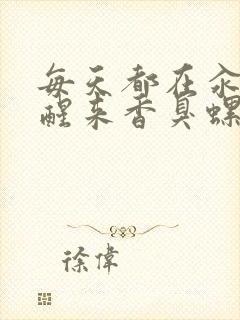 每天都在汆
醒来香臭螺
徐偉